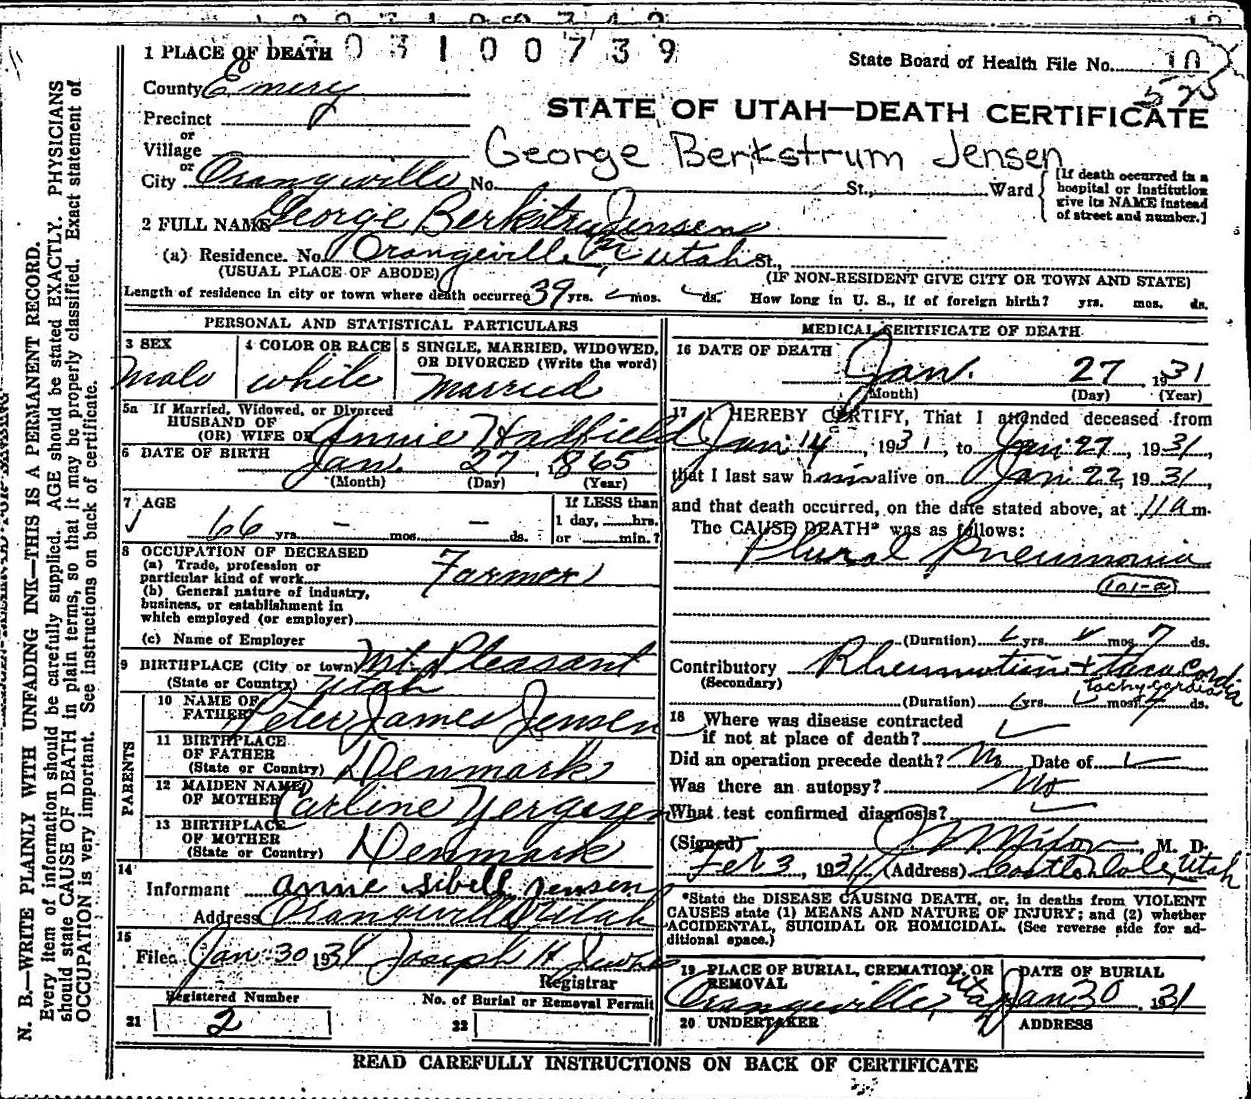 1003100739
1 PLACE OF DEATH
State Board of Health File No. 10
525
County Emery
STATE OF UTAH—DEATH CERTIFICATE
Precinct
or
Village
George Berkstrum Jensen
or
City Orangeville No. St., Ward
[If death occurred in a hospital or institution give its NAME instead of street and number.]
2 FULL NAME George Berkstrum Jensen
(a) Residence. No. Orangeville Utah St.,
(USUAL PLACE OF ABODE) (IF NON-RESIDENT GIVE CITY OR TOWN AND STATE)
Length of residence in city or town where death occurred 39 yrs. mos. ds. How long in U. S., if of foreign birth? yrs. mos. ds.
PERSONAL AND STATISTICAL PARTICULARS
3 SEX
Male
4 COLOR OR RACE
White
5 SINGLE, MARRIED, WIDOWED,
OR DIVORCED (Write the word)
Married
5a If Married, Widowed, or Divorced
HUSBAND OF
(OR) WIFE OF Annie Hadfield
6 DATE OF BIRTH Jan. 27, 1865
(Month) (Day) (Year)
7 AGE
66 yrs. – mos. – ds.
If LESS than
1 day, hrs.
or min.?
8 OCCUPATION OF DECEASED
(a) Trade, profession or
particular kind of work Farmer
(b) General nature of industry,
business, or establishment in
which employed (or employer)
(c) Name of Employer
9 BIRTHPLACE (City or town) Mt. Pleasant
(State or Country) Utah
PARENTS
10 NAME OF
FATHER Peter James Jensen
11 BIRTHPLACE
OF FATHER
(State or Country) Denmark
12 MAIDEN NAME
OF MOTHER Carline Yergesen
13 BIRTHPLACE
OF MOTHER
(State or Country) Denmark
14
Informant Anne Sibell Jensen
Address Orangeville Utah
15
Filed Jan 30 1931 Joseph H
Registrar
Registered Number
21 2
No. of Burial or Removal Permit
22
MEDICAL CERTIFICATE OF DEATH
16 DATE OF DEATH
Jan. 27, 1931
(Month) (Day) (Year)
17 I HEREBY CERTIFY, That I attended deceased from
Jan 14, 1931, to Jan 27, 1931,
that I last saw him alive on Jan 22, 1931,
and that death occurred, on the date stated above, at 11 a m.
The CAUSE DEATH* was as follows:
Plural Pneumonia
101-a
(Duration) yrs. mos. 7 ds.
Contributory Rheumatism + Taca Cordia
(Secondary) tachycardia
(Duration) yrs. mos. ds.
18 Where was disease contracted
if not at place of death?
Did an operation precede death? No Date of
Was there an autopsy? No
What test confirmed diagnosis?
(Signed) , M. D.
Feb 3, 1931 (Address) Castle Dale, Utah
*State the DISEASE CAUSING DEATH, or, in deaths from VIOLENT
CAUSES state (1) MEANS AND NATURE OF INJURY; and (2) whether
ACCIDENTAL, SUICIDAL OR HOMICIDAL. (See reverse side for ad-
ditional space.)
19 PLACE OF BURIAL, CREMATION, OR
REMOVAL
Orangeville, Utah
DATE OF BURIAL
Jan 30, 1931
20 UNDERTAKER
ADDRESS
READ CAREFULLY INSTRUCTIONS ON BACK OF CERTIFICATE
N. B.—WRITE PLAINLY WITH UNFADING INK—THIS IS A PERMANENT RECORD.
Every item of information should be carefully supplied. AGE should be stated EXACTLY. PHYSICIANS
should state CAUSE OF DEATH in plain terms, so that it may be properly classified. Exact statement of
OCCUPATION is very important. See instructions on back of certificate.